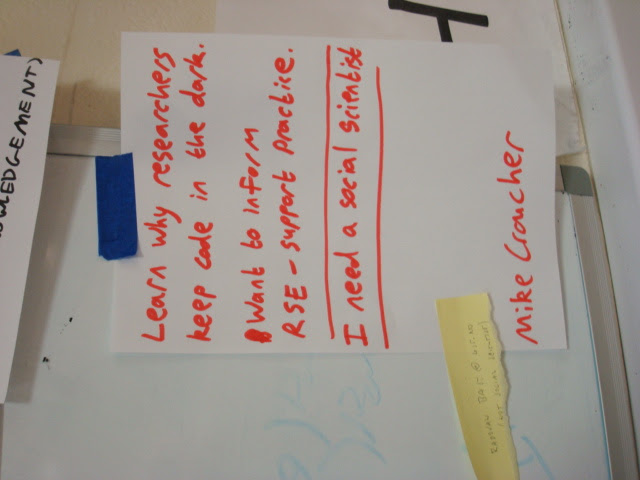 WLEDGEMENT)
Learn why researchers
keep code in the dark.
Want to inform
RSE - support practice.
I need a social scientist
(NOT SOCIAL SCIENTIST)
Mike Croucher
H